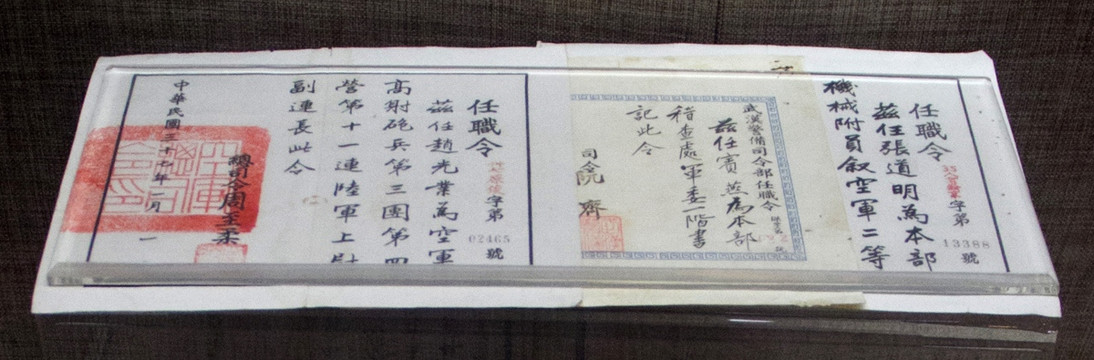 任職令
字第
13388
號
茲任張道明為本部
機械附員敘空軍二等
武漢警備司令部任職令
茲任賓燕為本部
稽查處軍委一階書
記此令
司令阮齊
任職令
字第
02465
號
茲任趙光業為空軍
高射砲兵第三團第四
營第十一連陸軍上尉
副連長此令
總司令周至柔
中華民國三十七年一月
一